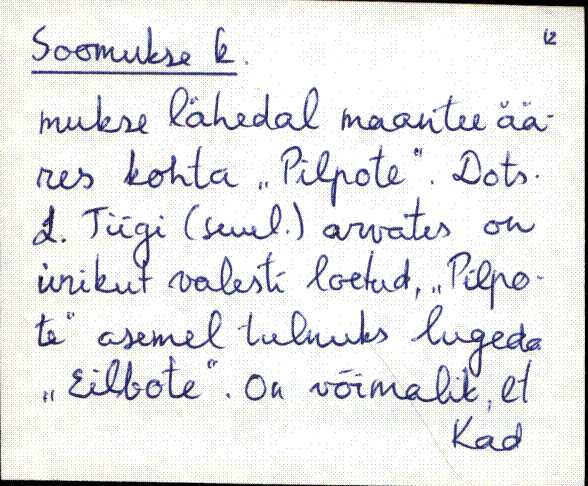 Soomukse k. 12
mukse lähedal maantee ää-
res kohta „Pilpote". Dots.
L. Tiigi (suul.) arvates on
ürikut valesti loetud, „Pilpo-
te" asemel tulnuks lugeda
„Eilbote". On võimalik, et
Kad